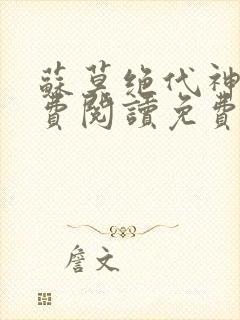 蘇莫絕代神
費閱讀免費
詹文